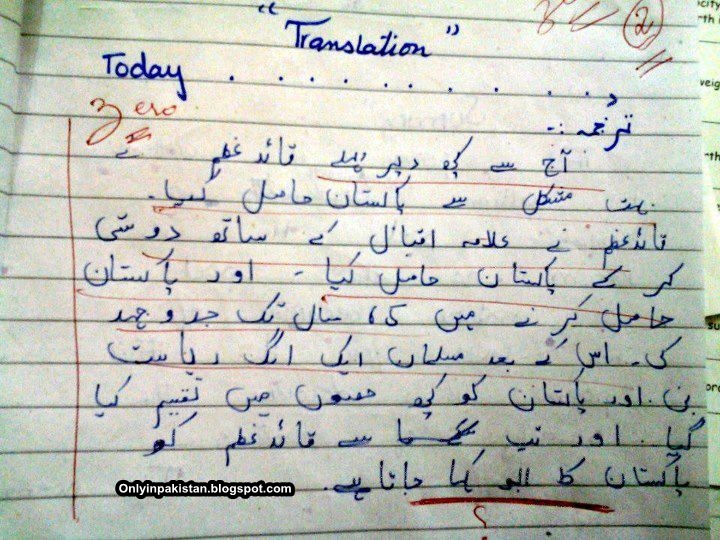 "Translation"
Today . . . . . . . . . . . .
Zero
2
ترجمہ :-
آج سے کچھ دیر پہلے قائد عظم نے
بہت مشکل سے پاکستان حاصل کیا۔
قائد عظم نے علامہ اقبال کے ساتھ دوستی
کر کے پاکستان حاصل کیا۔ اور پاکستان
حاصل کرنے میں 65 سال تک جدوجہد
کی۔ اس کے بعد مسلمان ایک الگ ریاست
بنی۔ اور پاکستان کو کچھ حصوں میں تقسیم کیا
گیا۔ اور تب سے قائد عظم کو
پاکستان کا ابو کہا جاتا ہے۔
?
Onlyinpakistan.blogspot.com